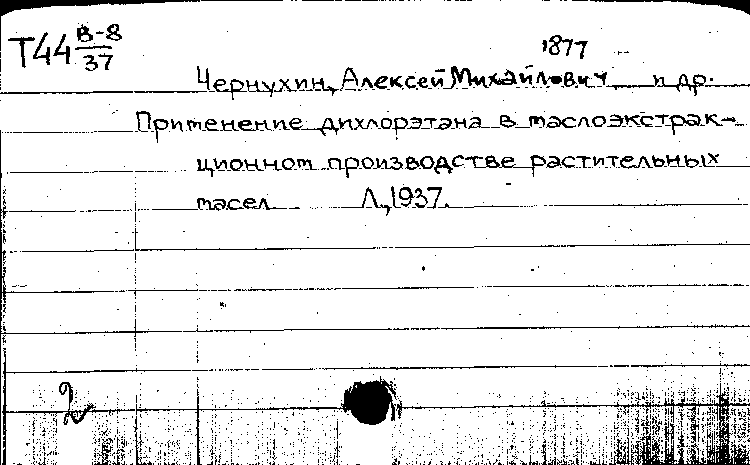 Т44 В-8/37
1877
Чернухин, Алексей Михайлович и др.
Применение дихлорэтана в маслоэкстрак-
ционном производстве растительных
масел Л., 1937.
2